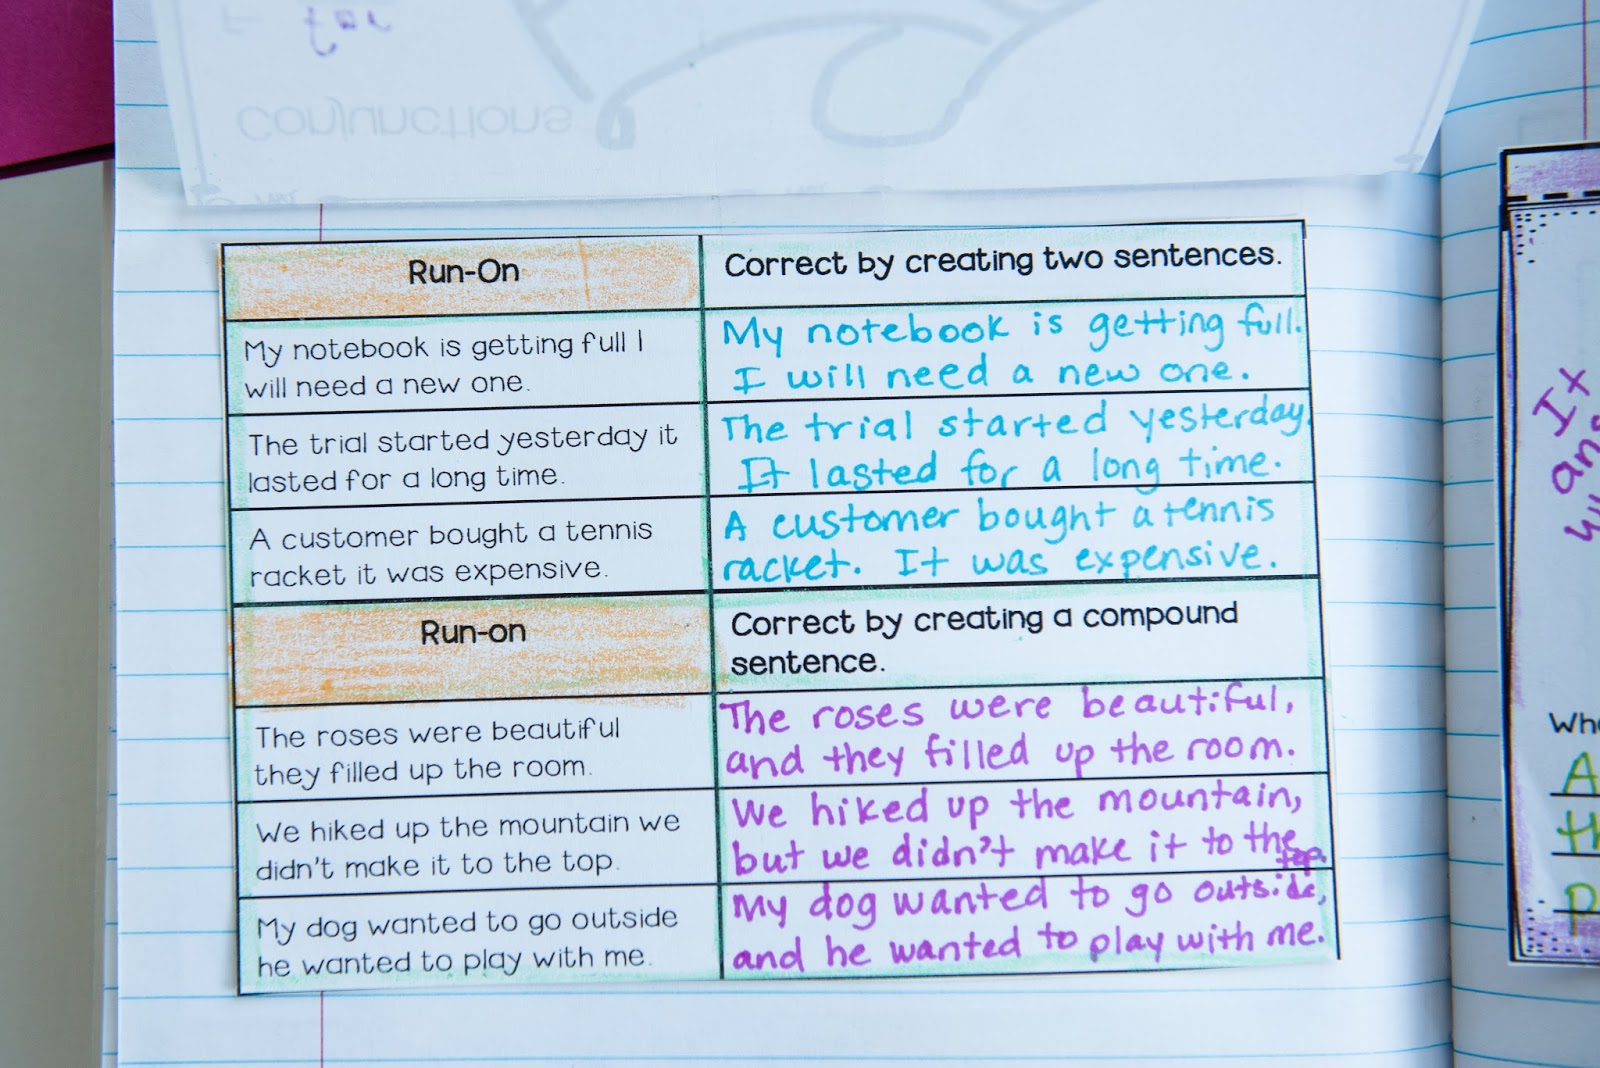 for
Conjunctions
Run-On
Correct by creating two sentences.
My notebook is getting full I
will need a new one.
My notebook is getting full.
I will need a new one.
The trial started yesterday it
lasted for a long time.
The trial started yesterday.
It lasted for a long time.
A customer bought a tennis
racket it was expensive.
A customer bought a tennis
racket. It was expensive.
Run-on
Correct by creating a compound
sentence.
The roses were beautiful
they filled up the room.
The roses were beautiful,
and they filled up the room.
We hiked up the mountain we
didn't make it to the top.
We hiked up the mountain,
but we didn't make it to the
top.
My dog wanted to go outside
he wanted to play with me.
My dog wanted to go outside,
and he wanted to play with me.
It